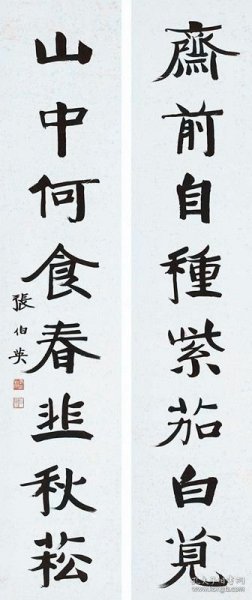 齋前自種紫茄白莧
山中何食春韭秋菘
張伯英